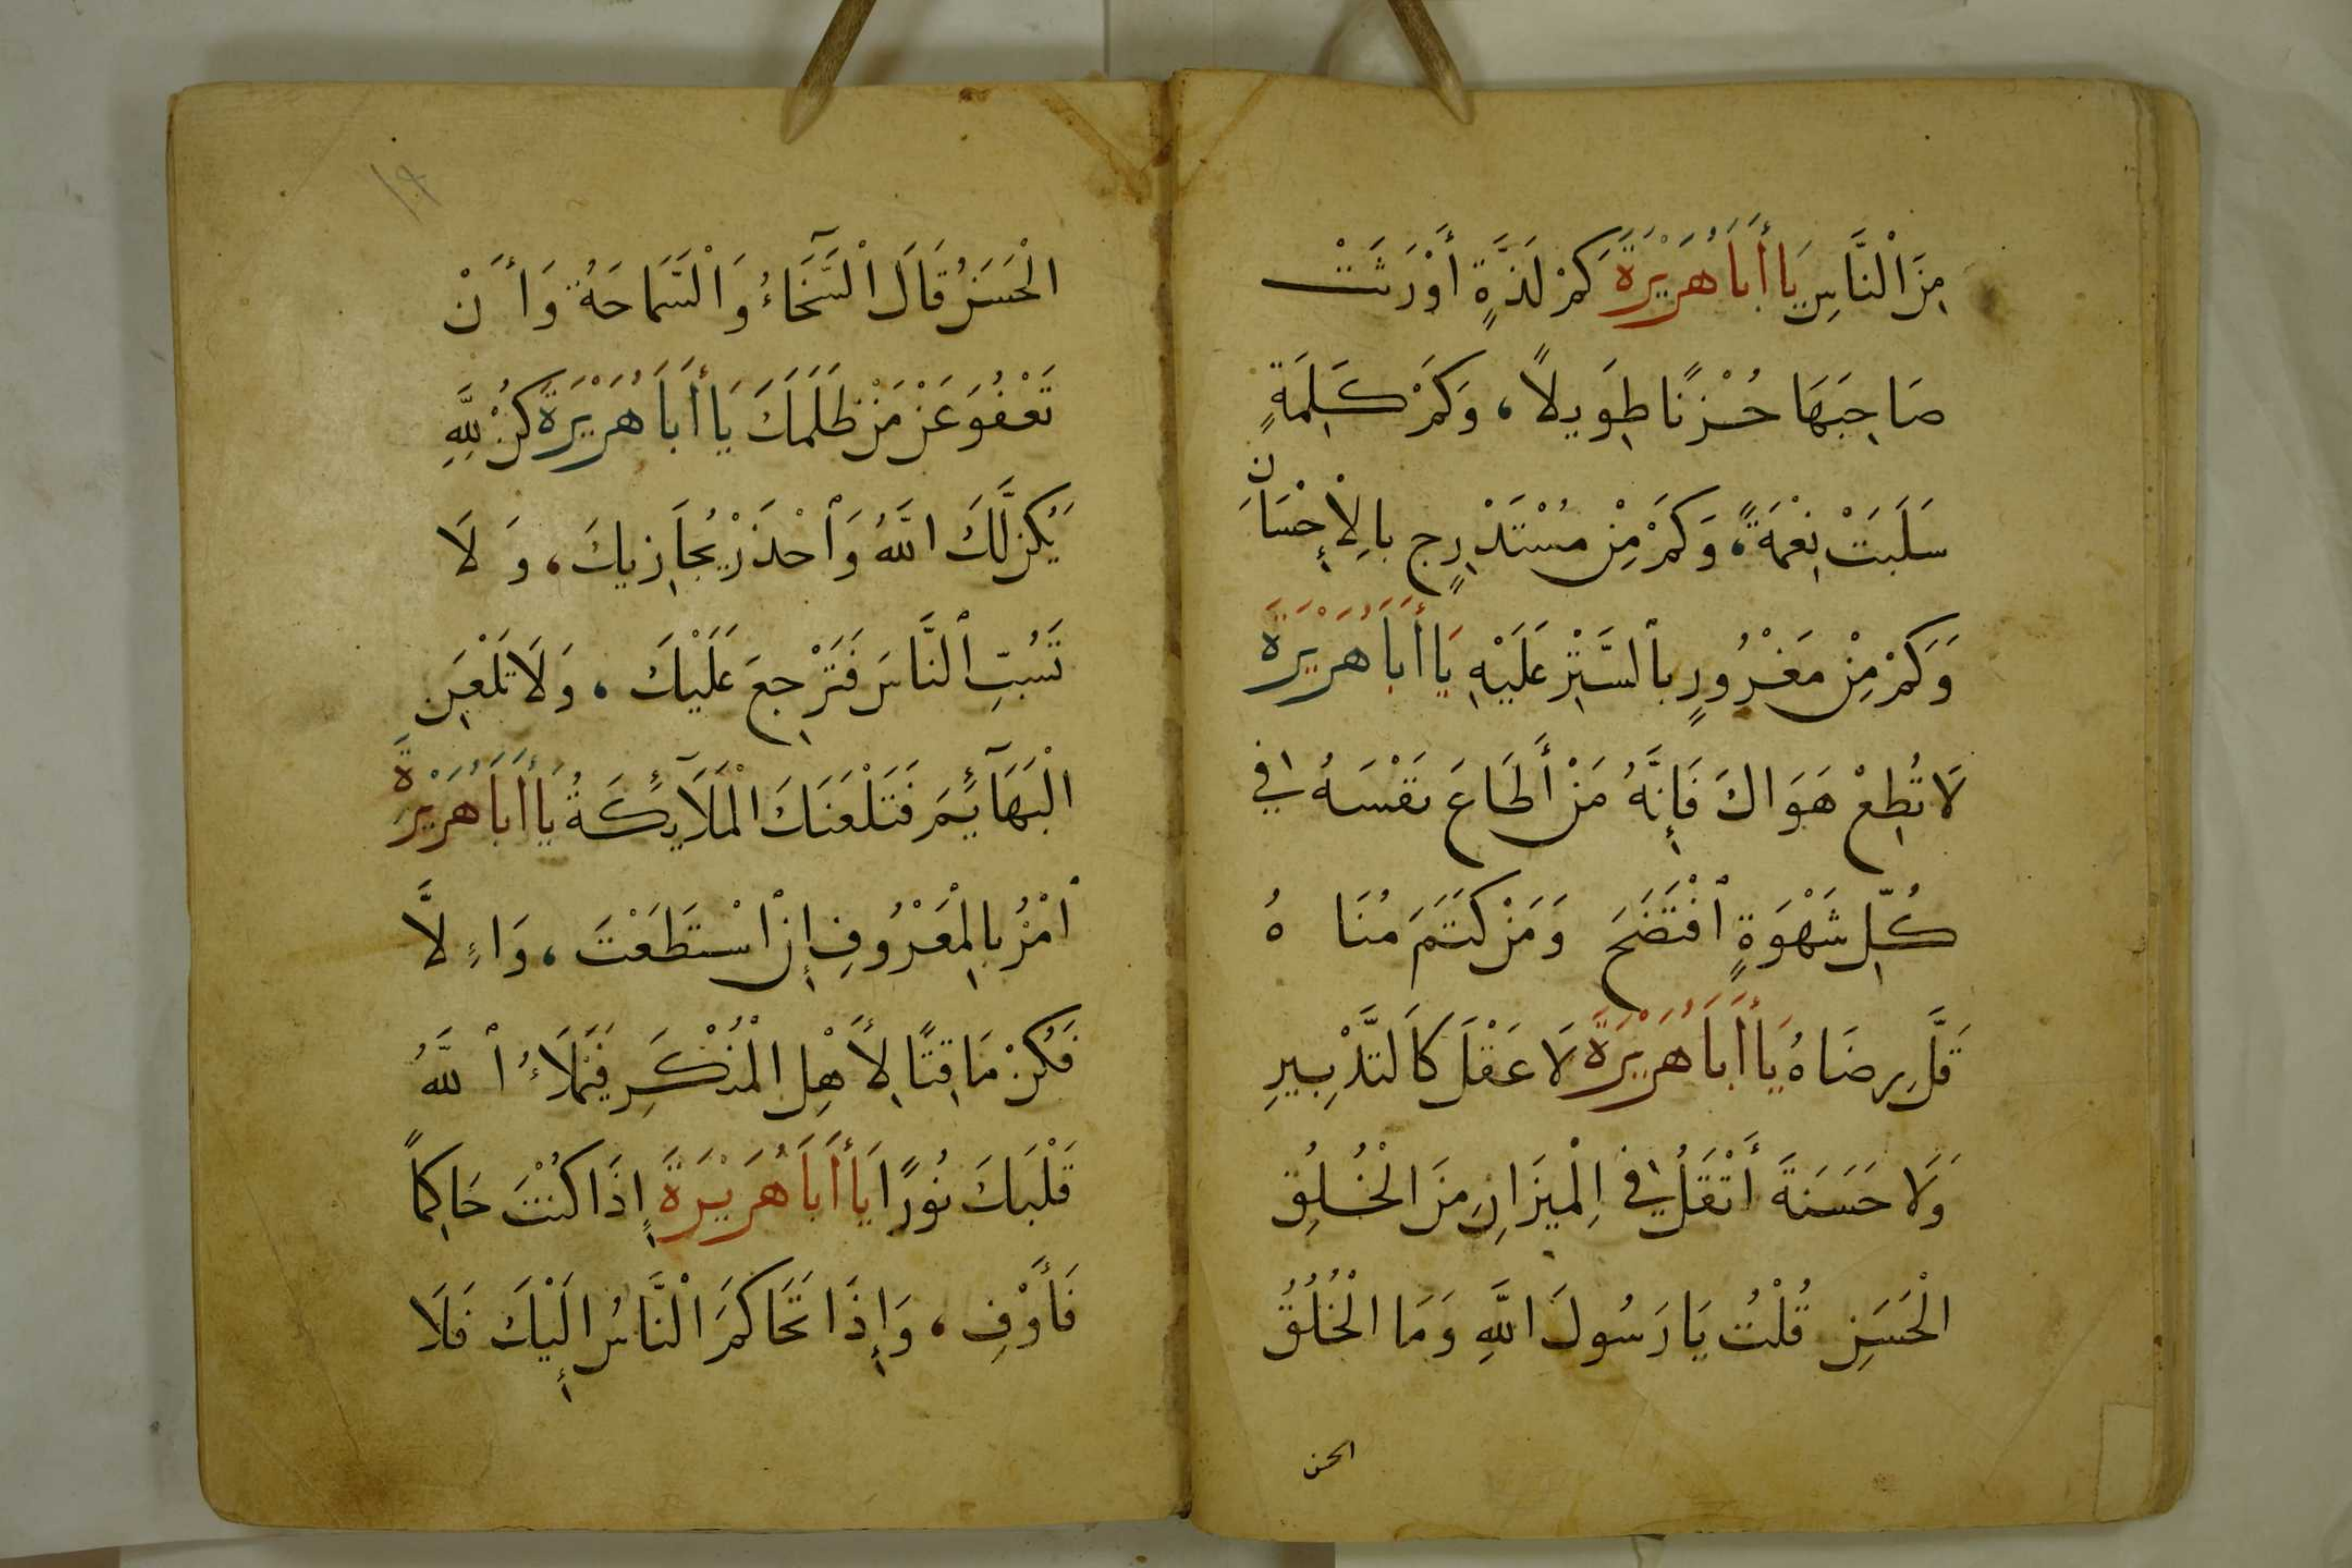 مِنَ ٱلْنَّاسِ يَا أَبَا هُرَيْرَةَ كَمْ لَذَّةٍ أَوْرَثَتْ
صَاحِبَهَا حُزْنًا طِوَيلاً، وَكَمْ كَلِمَةٍ
سَلَبَتْ نِعْمَةً، وَكَمْ مِنْ مُسْتَدْرِجٍ بالِاْحْسَان
وَكَمْ مِنْ مَغْرُورٍ بٱلسَّتِرْ عَلَيْهِ يَا أَبَا هُرَيْرَةَ
لَا تُطِعْ هَوَاكَ فَإِنَّهُ مَنْ أَطَاعَ نَفْسَهُ في
كُلِّ شَهْوَةٍ ٱفْتَضَحَ وَمَنْ كَتَمَ مُنَاهُ
قَلَّ رِضَاهُ يَا أَبَا هُرَيْرَةَ لَا عَقْلَ كَالتَّدْبِيرِ
وَلَا حَسَنَةَ أَثْقَلُ في اِلْمِيزَانِ مِنَ الْخُلُقِ
الْحَسَنِ قُلْتُ يَا رَسُولَ اللَّهِ وَمَا الْخُلُقُ
الحسن
١٩
الْحَسَنُ قَالَ ٱلْسَّخَآءُ وَٱلْسَّمَاحَةُ وَأَنْ
تَعْفُوَ عَنْ مَنْ ظَلَمَكَ يَا أَبَا هُرَيْرَةَ كُنْ لِلَّهِ
يَكُنْ لَّكَ اللَّهُ وَٱحْذَرْ يُجَازِيكَ، وَلَا
تَسُبِّ ٱلنَّاسَ فَتَرْجِعَ عَلَيْكَ، وَلَا تَلْعَنِ
الْبَهَآئِمَ فَتَلْعَنَكَ الْمَلَآئِكَةُ يَا أَبَا هُرَيْرَةَ
ٱمْرُ بِالْمَعْرُوفِ إِنِ ٱسْتَطَعْتَ، وَاءِلَّا
فَكُنْ مَاقِتًا لِأَهْلِ الْمُنْكَرِ فَيَمْلَاءُ ٱللَّهُ
قَلْبَكَ نُورًا يَا أَبَا هُرَيْرَةَ إِذَا كُنْتَ حَاكِمًا
فَأَوْفِ، وَإِذَا تَحَاكَمَ ٱلْنَّاسُ إِلَيْكَ فَلَا